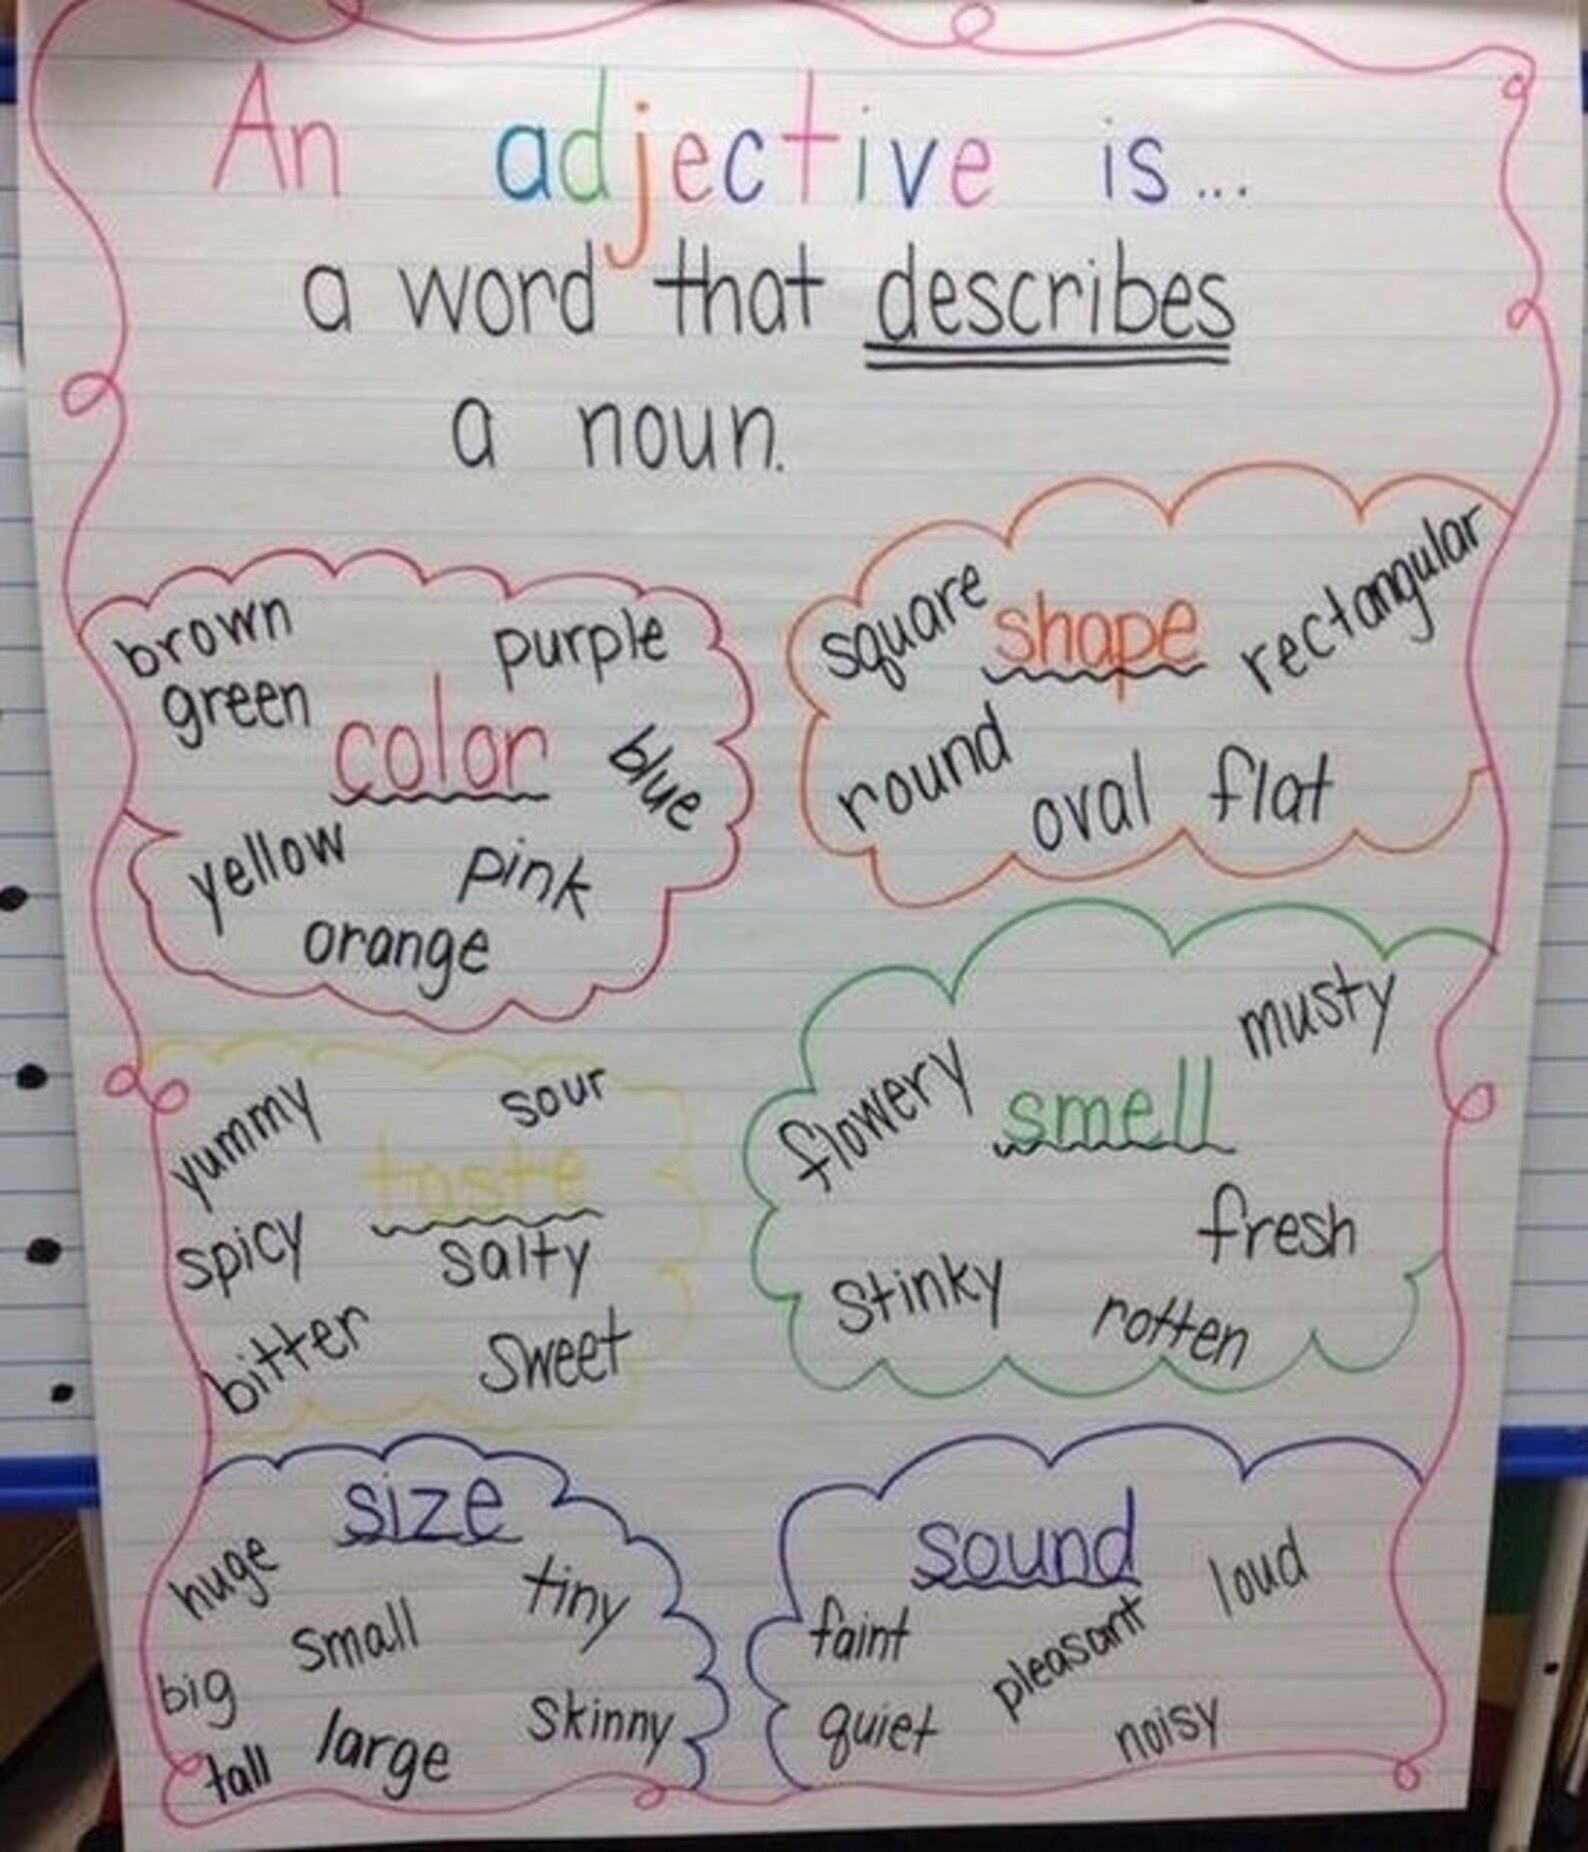 An adjective is...
a word that describes
a noun.
color
brown
purple
green
blue
yellow
pink
orange
shape
square
rectangular
round
oval
flat
taste
yummy
sour
spicy
salty
bitter
sweet
smell
musty
flowery
fresh
stinky
rotten
size
huge
tiny
small
big
skinny
large
tall
sound
loud
faint
pleasant
quiet
noisy